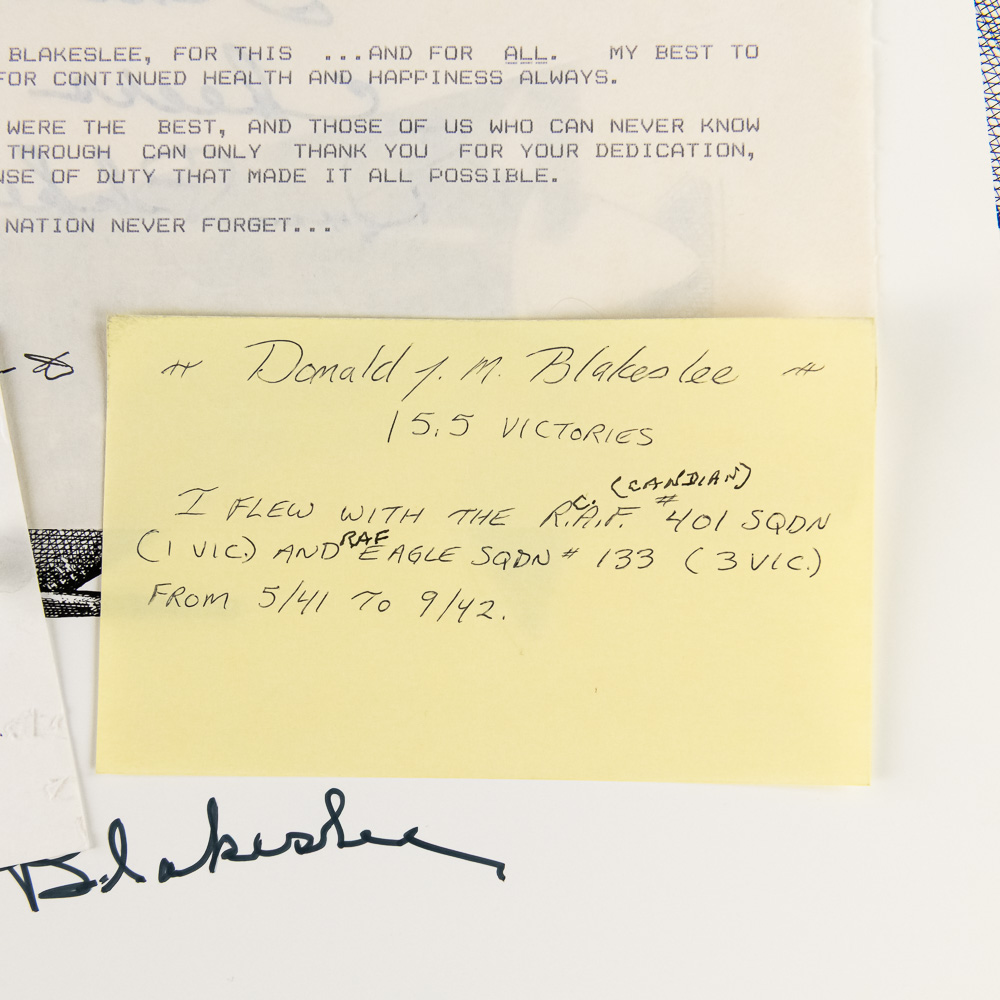 BLAKESLEE, FOR THIS ...AND FOR ALL. MY BEST TO
FOR CONTINUED HEALTH AND HAPPINESS ALWAYS.
WERE THE BEST, AND THOSE OF US WHO CAN NEVER KNOW
THROUGH CAN ONLY THANK YOU FOR YOUR DEDICATION,
NSE OF DUTY THAT MADE IT ALL POSSIBLE.
NATION NEVER FORGET...
# Donald J. M. Blakeslee #
15.5 VICTORIES
(CANDIAN)
I FLEW WITH THE R.C.A.F. #401 SQDN
(1 VIC.) AND RAF EAGLE SQDN # 133 (3 VIC.)
FROM 5/41 TO 9/42.
Blakeslee